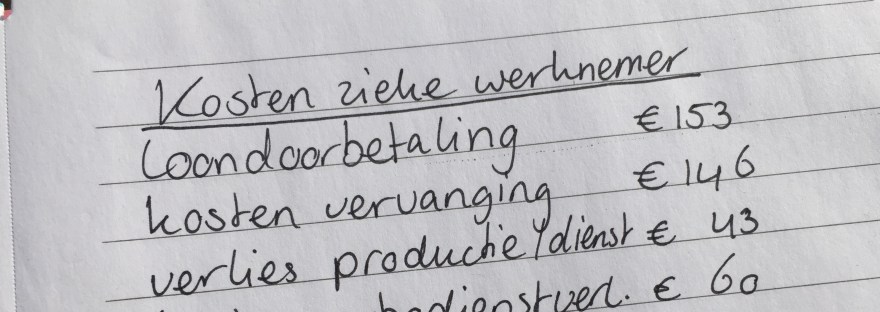 Kosten zieke werknemer
Loondoorbetaling € 153
kosten vervanging € 146
verlies productie/dienst € 43
€ 60